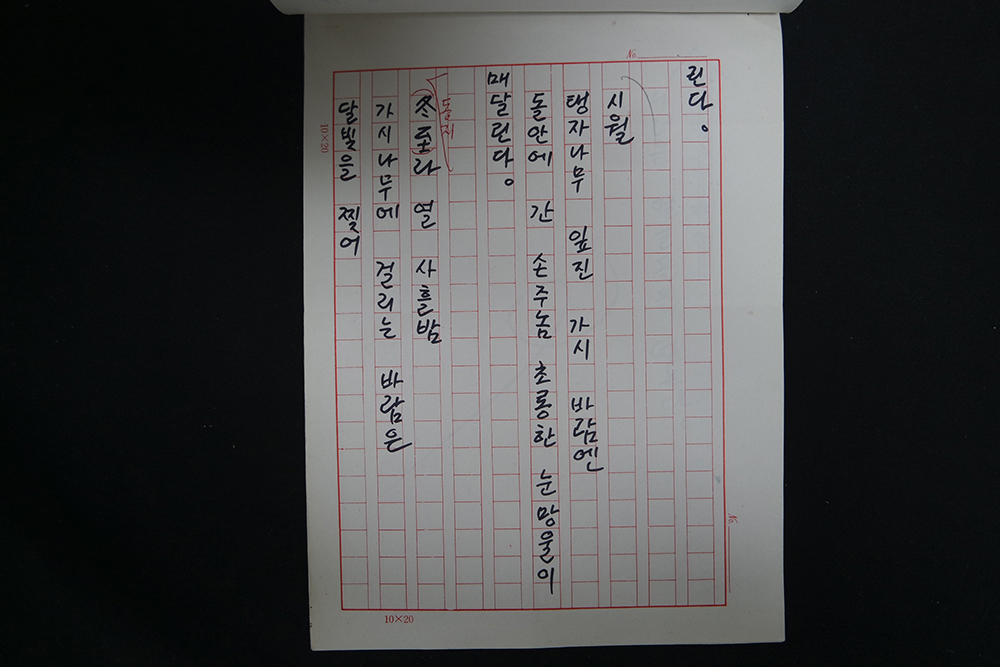 No.
린다。
시월
탱자나무 잎진 가시 바람엔
돌안에 간 손주놈 초롱한 눈망울이
매달린다。
동지
冬至라 열 사흘밤
가시나무에 걸리는 바람은
달빛을 찢어
10×20
No.
10×20